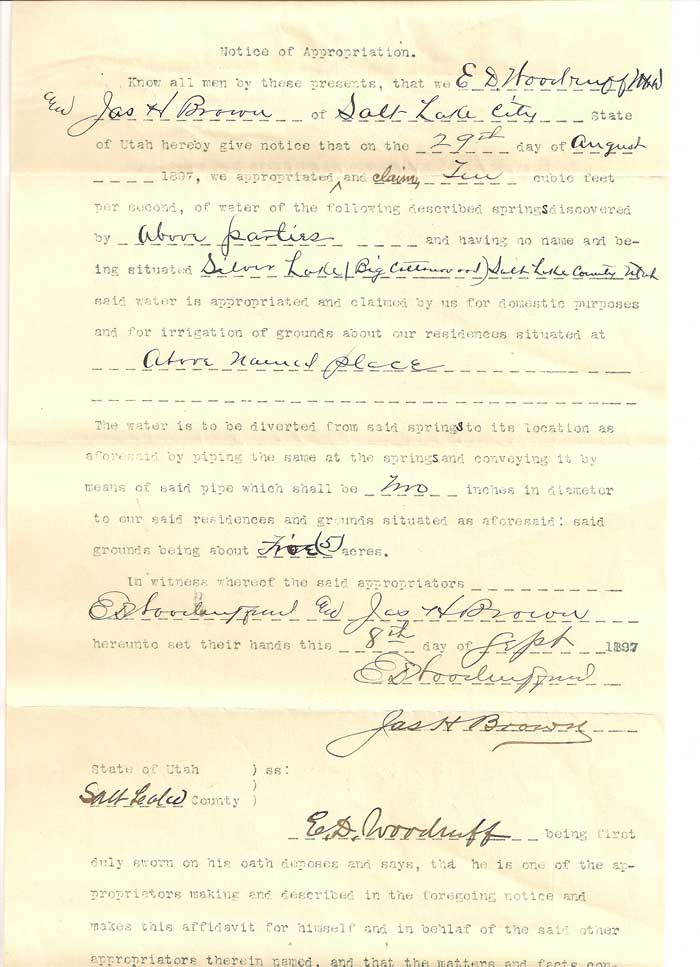 Notice of Appropriation.
Know all men by these presents, that we E D Woodruff (M.D.)
and Jas H Brown of Salt Lake City State
of Utah hereby give notice that on the 29th day of August
1897, we appropriated and claim, Ten cubic feet
per second, of water of the following described springs discovered
by Above parties and having no name and be-
ing situated Silver Lake (Big Cottonwood) Salt Lake County Utah
said water is appropriated and claimed by us for domestic purposes
and for irrigation of grounds about our residences situated at
Above Named place
The water is to be diverted from said springs to its location as
aforesaid by piping the same at the springs and conveying it by
means of said pipe which shall be Two inches in diameter
to our said residences and grounds situated as aforesaid: said
grounds being about Five (5) acres.
In witness whereof the said appropriators
E D Woodruff and Jas H Brown
hereunto set their hands this 8th day of Sept 1897
E D Woodruff
Jas H Brown
State of Utah ) ss:
)
Salt Lake County )
E. D. Woodruff being first
duly sworn on his oath deposes and says, tha he is one of the ap-
propriators making and described in the foregoing notice and
makes this affidavit for himself and in behlaf of the said other
appropriators therein named, and that the matters and facts con-